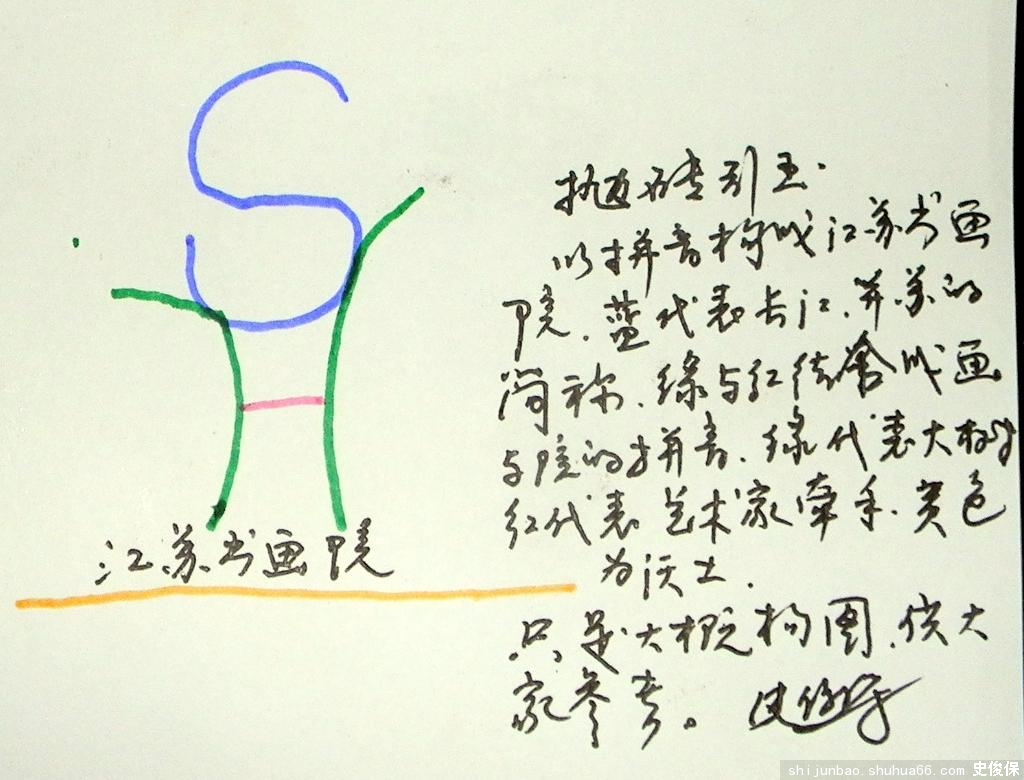 江苏书画院
抛砖引玉.
以拼音构成江苏书画
院.蓝代表长江.并苏的
简称.绿与红结合成画
与院的拼音.绿代表大树
红代表艺术家牵手.黄色
为沃土.
只是大概构图.供大
家参考。
shijunbao.shuhua66.com 史俊保